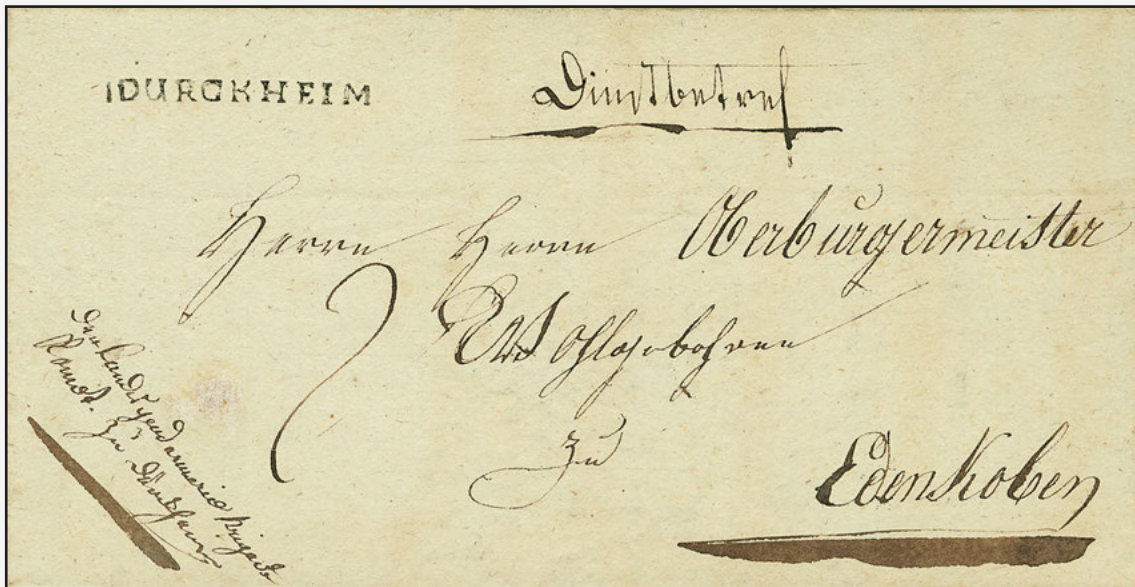 DÜRCKHEIM
Dienstbetref
Herrn Herrn Oberburgermeister
Wohlgebohren
zu
Edenkoben
der Landesgendarmerie brigade
Komdt. zu Dürkheim